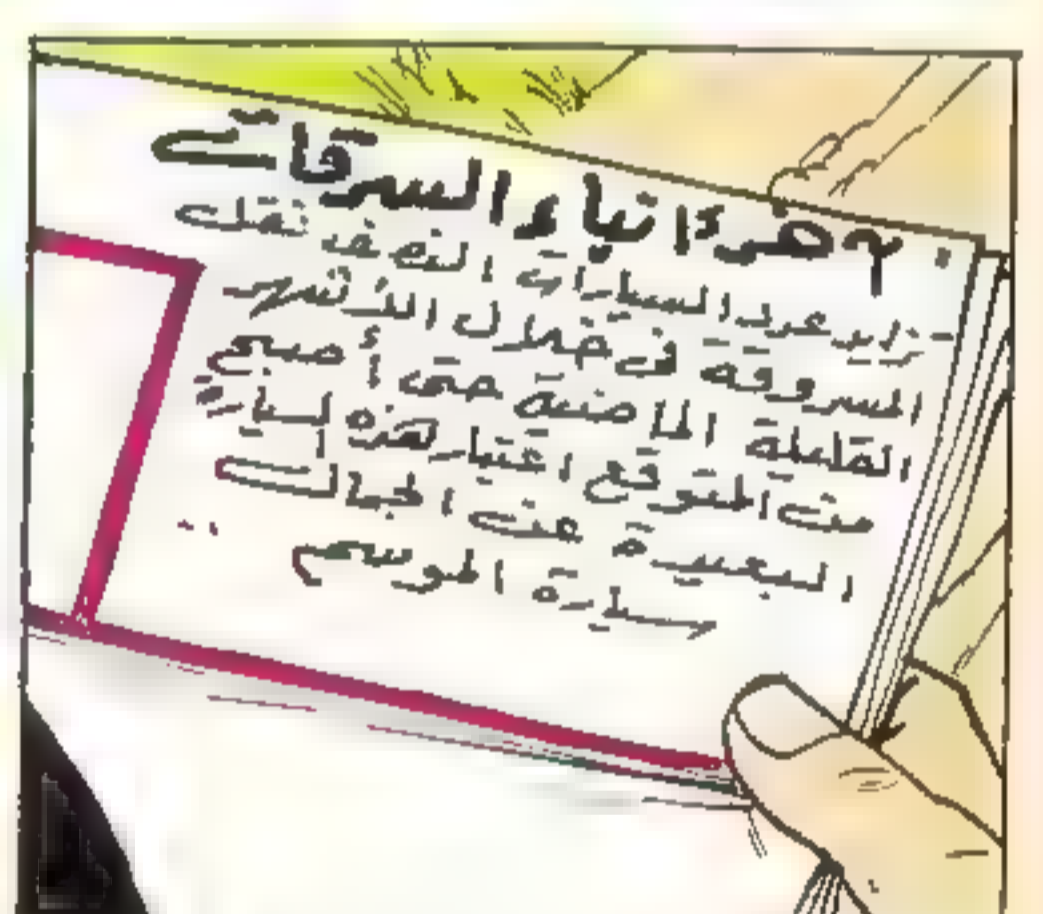 آخر أنباء السرقات
تزايد عدد السيارات النصف نقل
المسروقة فى خلال الأشهر
القليلة الماضية حتى أصبح
من المتوقع اعتبار هذه لسيارة
البعيدة عن الجمال
سيارة الموسم ..